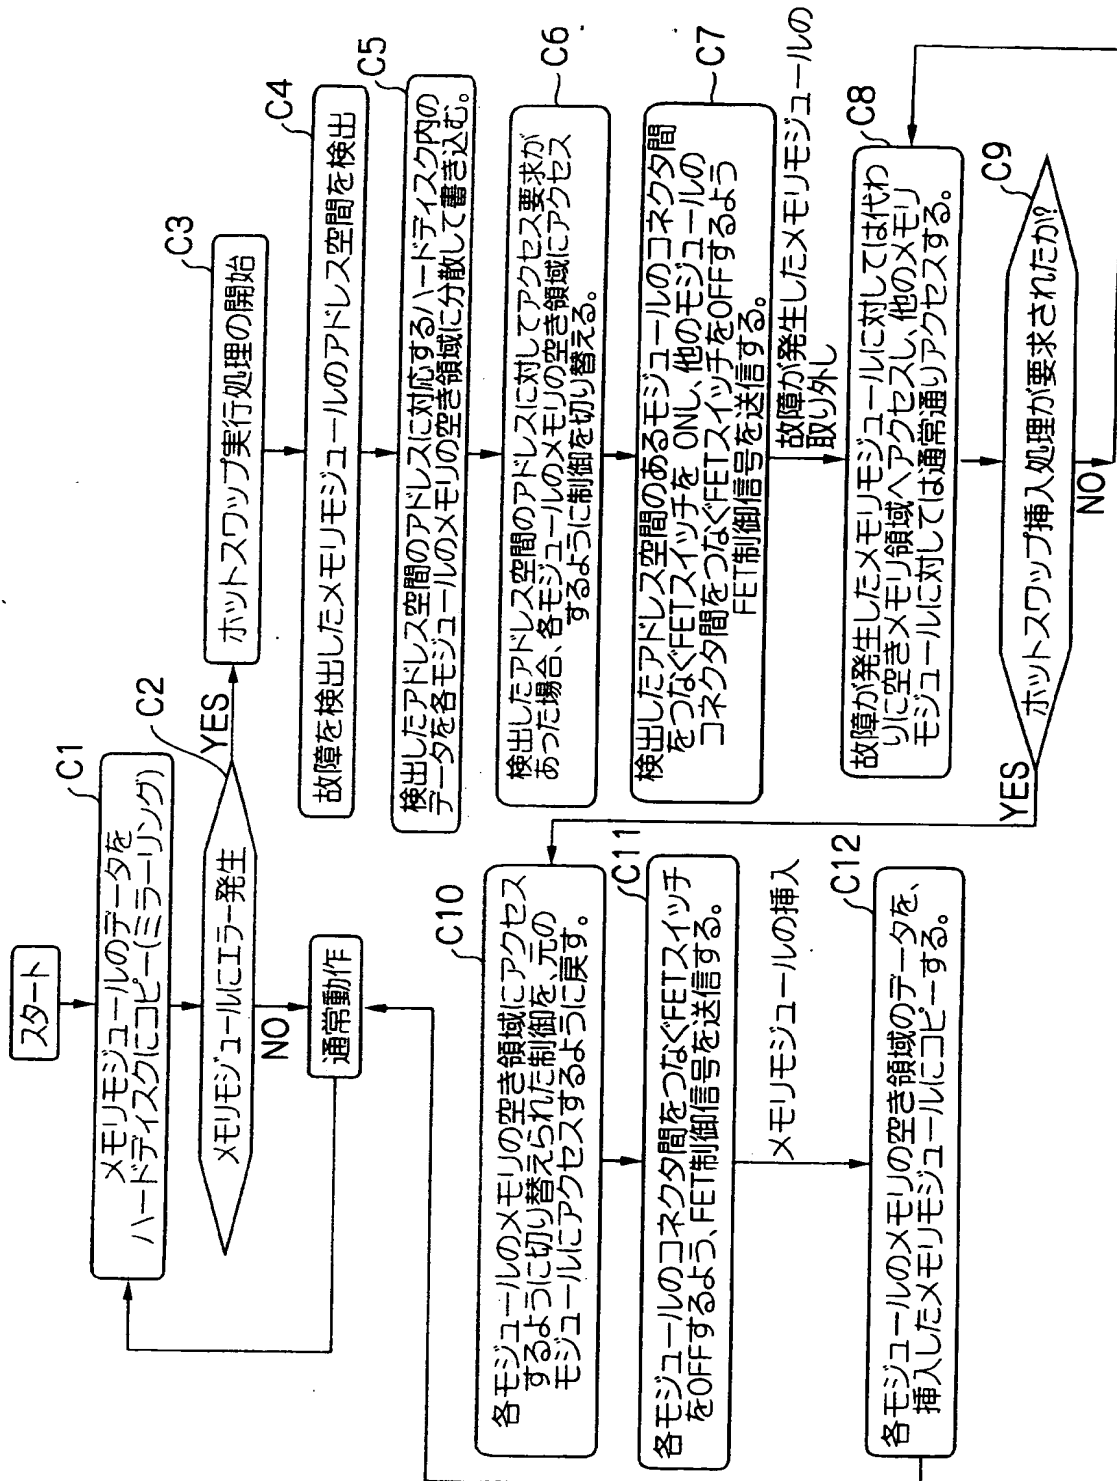 スタート
メモリモジュールのデータを
ハードディスクにコピー(ミラーリング)
C1
メモリモジュールにエラー発生
C2
YES
NO
通常動作
ホットスワップ実行処理の開始
C3
故障を検出したメモリモジュールのアドレス空間を検出
C4
検出したアドレス空間のアドレスに対応するハードディスク内の
データを各モジュールのメモリの空き領域に分散して書き込む。
C5
検出したアドレス空間のアドレスに対してアクセス要求が
あった場合、各モジュールのメモリの空き領域にアクセス
するように制御を切り替える。
C6
検出したアドレス空間のあるモジュールのコネクタ間
をつなぐFETスイッチを ON し、他のモジュールの
コネクタ間をつなぐFETスイッチをOFFするよう
FET制御信号を送信する。
C7
故障が発生したメモリモジュールの
取り外し
故障が発生したメモリモジュールに対しては代わ
りに空きメモリ領域へアクセスし、他のメモリ
モジュールに対しては通常通りアクセスする。
C8
ホットスワップ挿入処理が要求されたか?
C9
YES
NO
各モジュールのメモリの空き領域にアクセス
するように切り替えられた制御を、元の
モジュールにアクセスするように戻す。
C10
各モジュールのコネクタ間をつなぐFETスイッチ
をOFFするよう、FET制御信号を送信する。
C11
メモリモジュールの挿入
各モジュールのメモリの空き領域のデータを、
挿入したメモリモジュールにコピーする。
C12